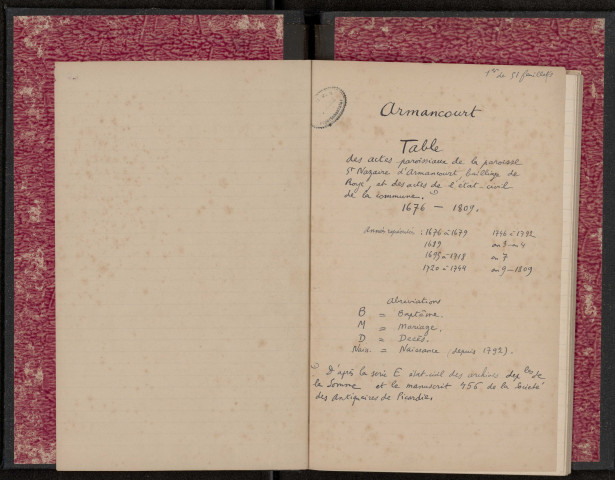 1er de 51 feuillets
Armancourt
Table
des actes paroissiaux de la paroisse
St Nazaire d'Armancourt, bailliage de
Roye, et des actes de l'état-civil
de la commune. (1)
1676 — 1809.
Années représentées : 1676 à 1679 1746 à 1792
1689 an 3 - an 4
1695 à 1718 an 7
1720 à 1744 an 9 - 1809
Abréviations
B = Baptême.
M = Mariage.
D = Décès.
Nais. = Naissance (depuis 1792).
(1) D'après la serie E état-civil des archives deples de
la Somme et le manuscrit 456 de la Société
des Antiquaires de Picardie.